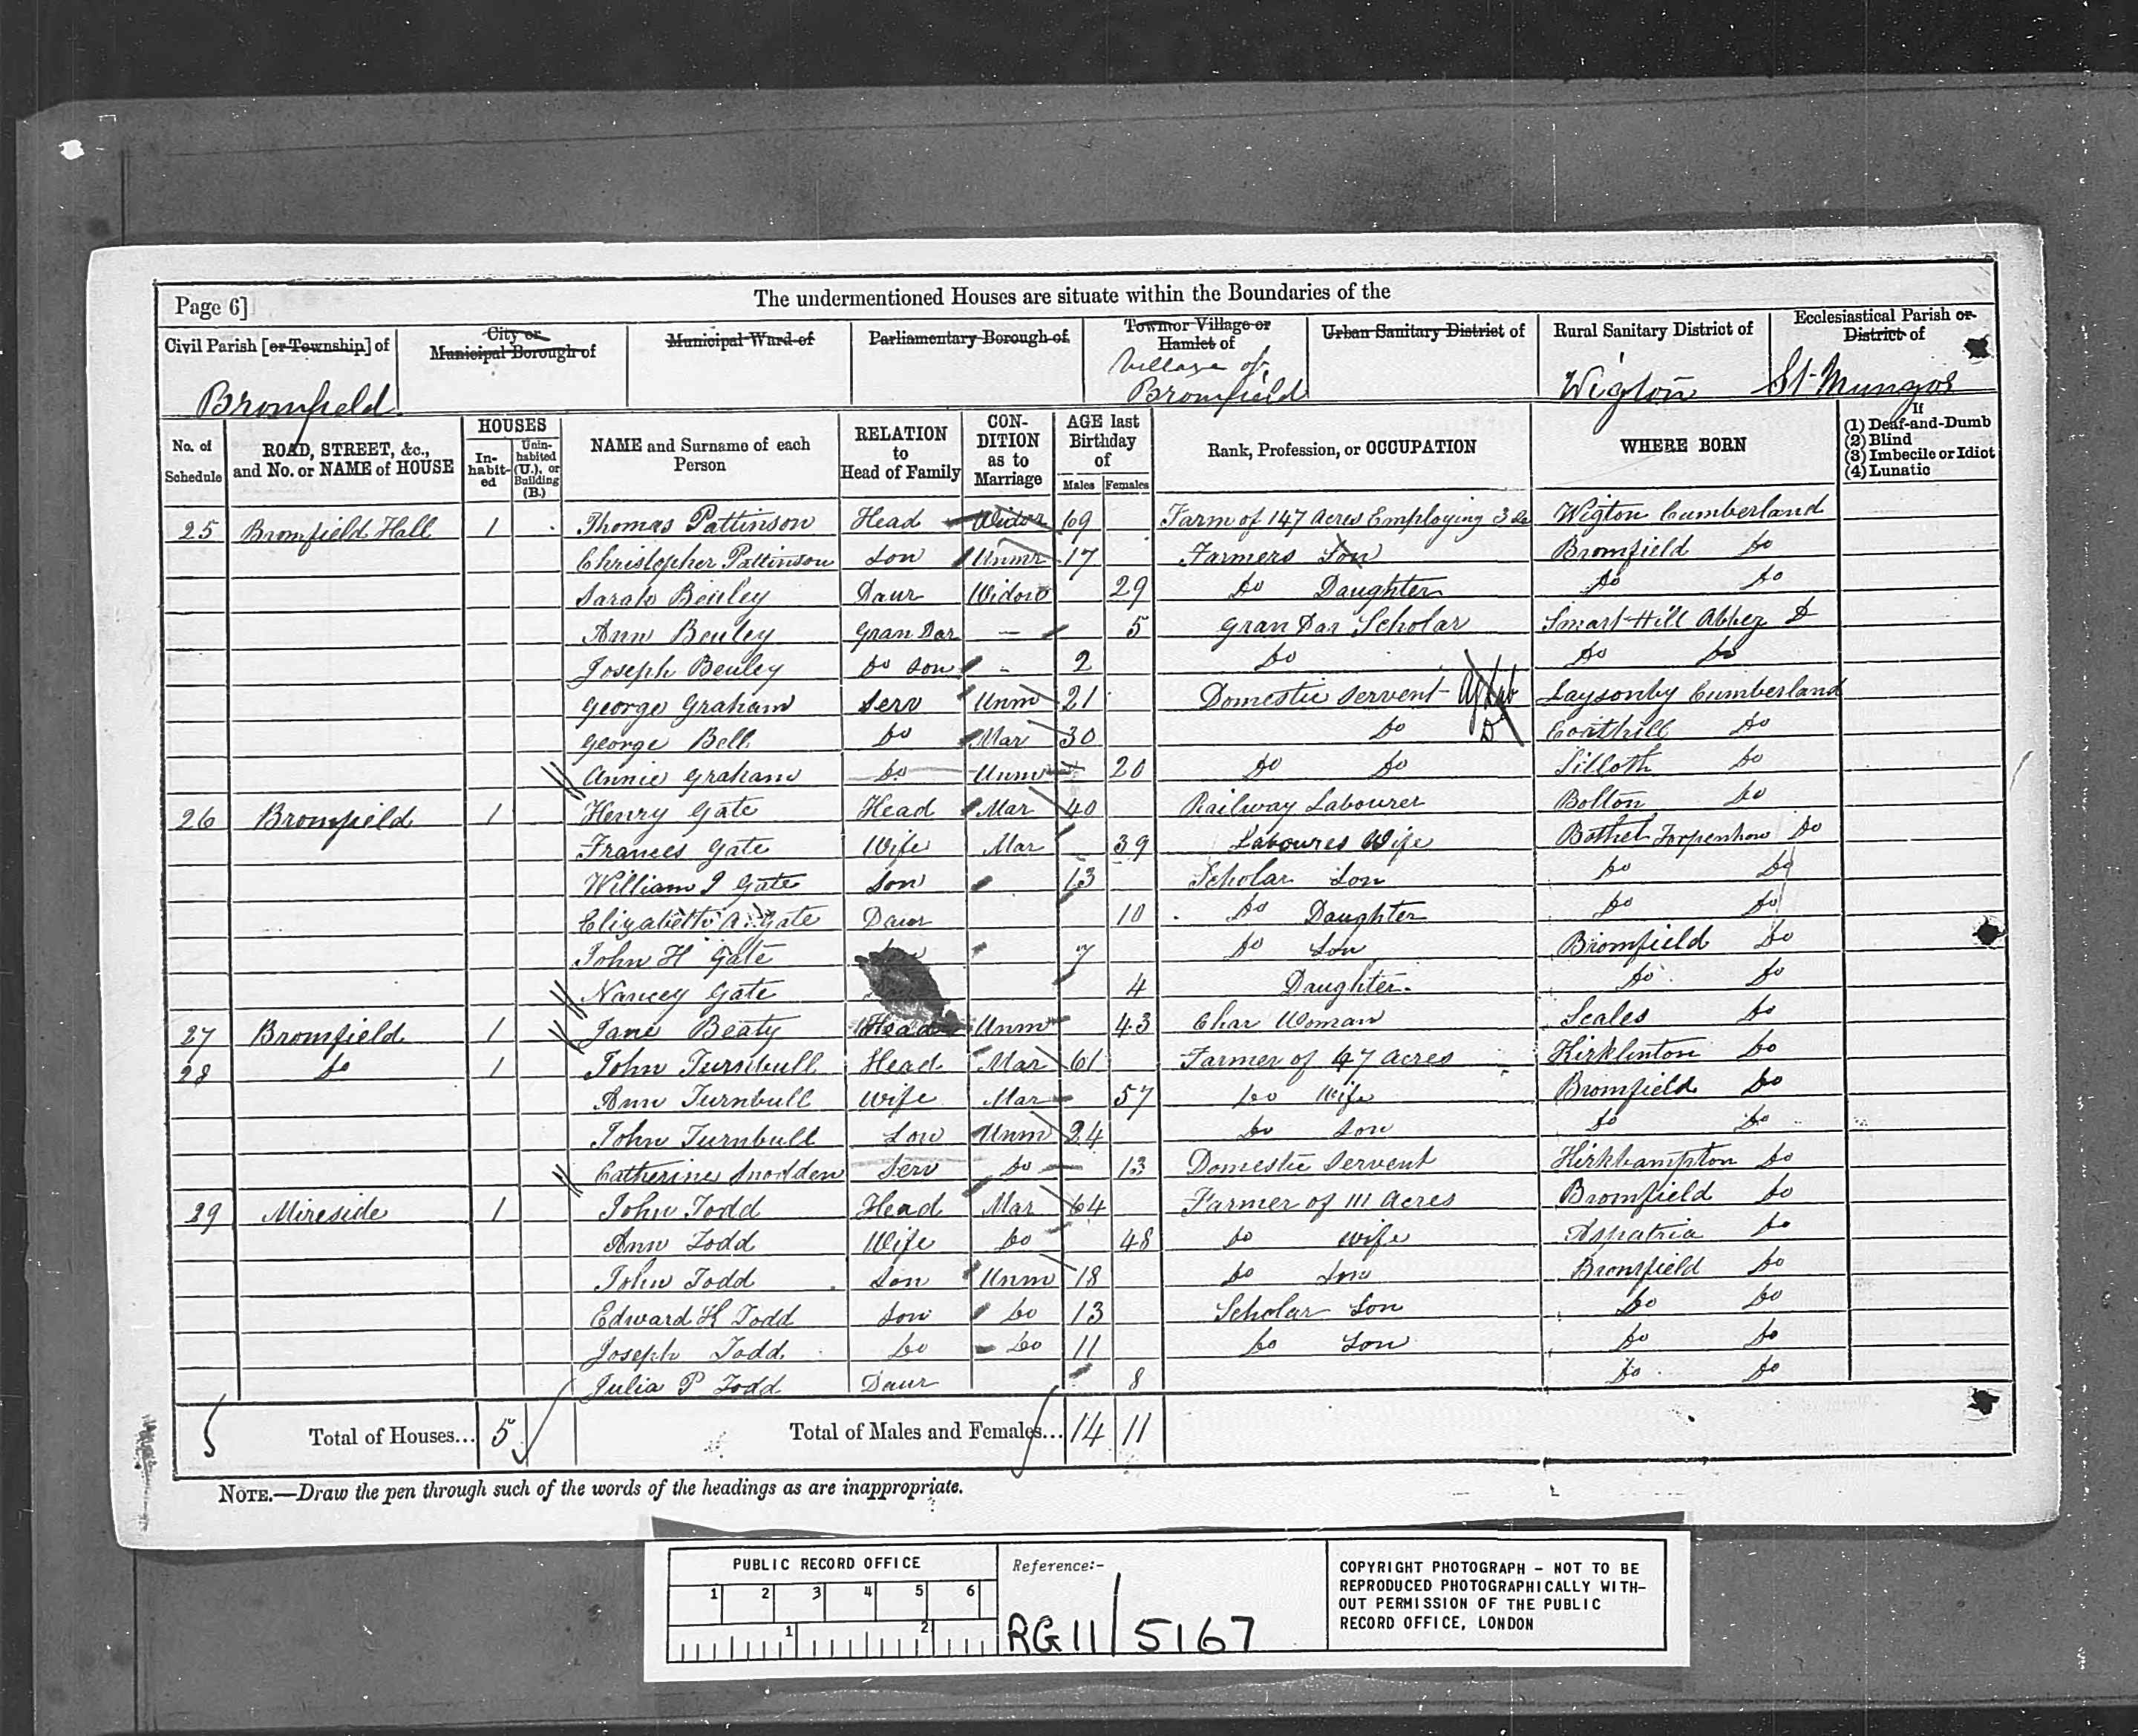 Page 6]
The undermentioned Houses are situate within the Boundaries of the
Civil Parish [or Township] of
City or Municipal Borough of
Municipal Ward of
Parliamentary Borough of
Town or Village or Hamlet of
Urban Sanitary District of
Rural Sanitary District of
Ecclesiastical Parish or District of
Bromfield
Village of Bromfield
Wigton
St Mungos
No. of Schedule
ROAD, STREET, &c., and No. or NAME of HOUSE
HOUSES
In-habit-ed
Unin-habited (U.), or Building (B.)
NAME and Surname of each Person
RELATION to Head of Family
CON-DITION as to Marriage
AGE last Birthday of
Males Females
Rank, Profession, or OCCUPATION
WHERE BORN
If
(1) Deaf-and-Dumb
(2) Blind
(3) Imbecile or Idiot
(4) Lunatic
25 Bromfield Hall 1 Thomas Pattinson Head Widor 69 Farm of 147 Acres Employing 3 Wigton Cumberland
Christopher Pattinson Son Unmr 17 Farmers Son Bromfield Do
Sarah Benley Daur Widow 29 Do Daughter Do Do
Ann Benley Gran Dar 5 Gran Dar Scholar Hill Abbey D
Joseph Benley Do Son 2 Do Do Do
George Graham Serv Unm 21 Domestic Servent Ag Lab Laysonby Cumberland
George Bell Do Mar 30 Do Do Do
Annie Graham Do Unm 20 Do Do Silloth Do
26 Bromfield 1 Henry Gate Head Mar 40 Railway Labourer Bolton Do
Frances Gate Wife Mar 39 Laboures Wife Bothel Torpenhow Do
William J Gate Son 13 Scholar Son Do Do
Elizabeth A. Gate Daur 10 Do Daughter Do Do
John H Gate 7 Do Son Bromfield Do
Nancey Gate 4 Daughter Do Do
27 Bromfield 1 Jane Beaty Head Unm 43 Char Woman Scales Do
28 Do 1 John Turnbull Head Mar 61 Farmer of 47 Acres Kirklinton Do
Ann Turnbull Wife Mar 57 Do Wife Bromfield Do
John Turnbull Son Unm 24 Do Son Do Do
Catherine Snodden Serv Do 13 Domestic Servent Kirkbampton Do
29 Mireside 1 John Todd Head Mar 64 Farmer of 111 Acres Bromfield Do
Ann Todd Wife Do 48 Do Wife Aspatria Do
John Todd Son Unm 18 Do Son Bromfield Do
Edward H Todd Son Do 13 Scholar Son Do Do
Joseph Todd Do Do 11 Do Son Do Do
Julia P Todd Daur 8 Do Do
5 Total of Houses... 5 Total of Males and Females... 14 11
NOTE.—Draw the pen through such of the words of the headings as are inappropriate.
PUBLIC RECORD OFFICE
1 2 3 4 5 6
1 2
Reference:-
RG 11/5167
COPYRIGHT PHOTOGRAPH – NOT TO BE
REPRODUCED PHOTOGRAPHICALLY WITH-
OUT PERMISSION OF THE PUBLIC
RECORD OFFICE, LONDON